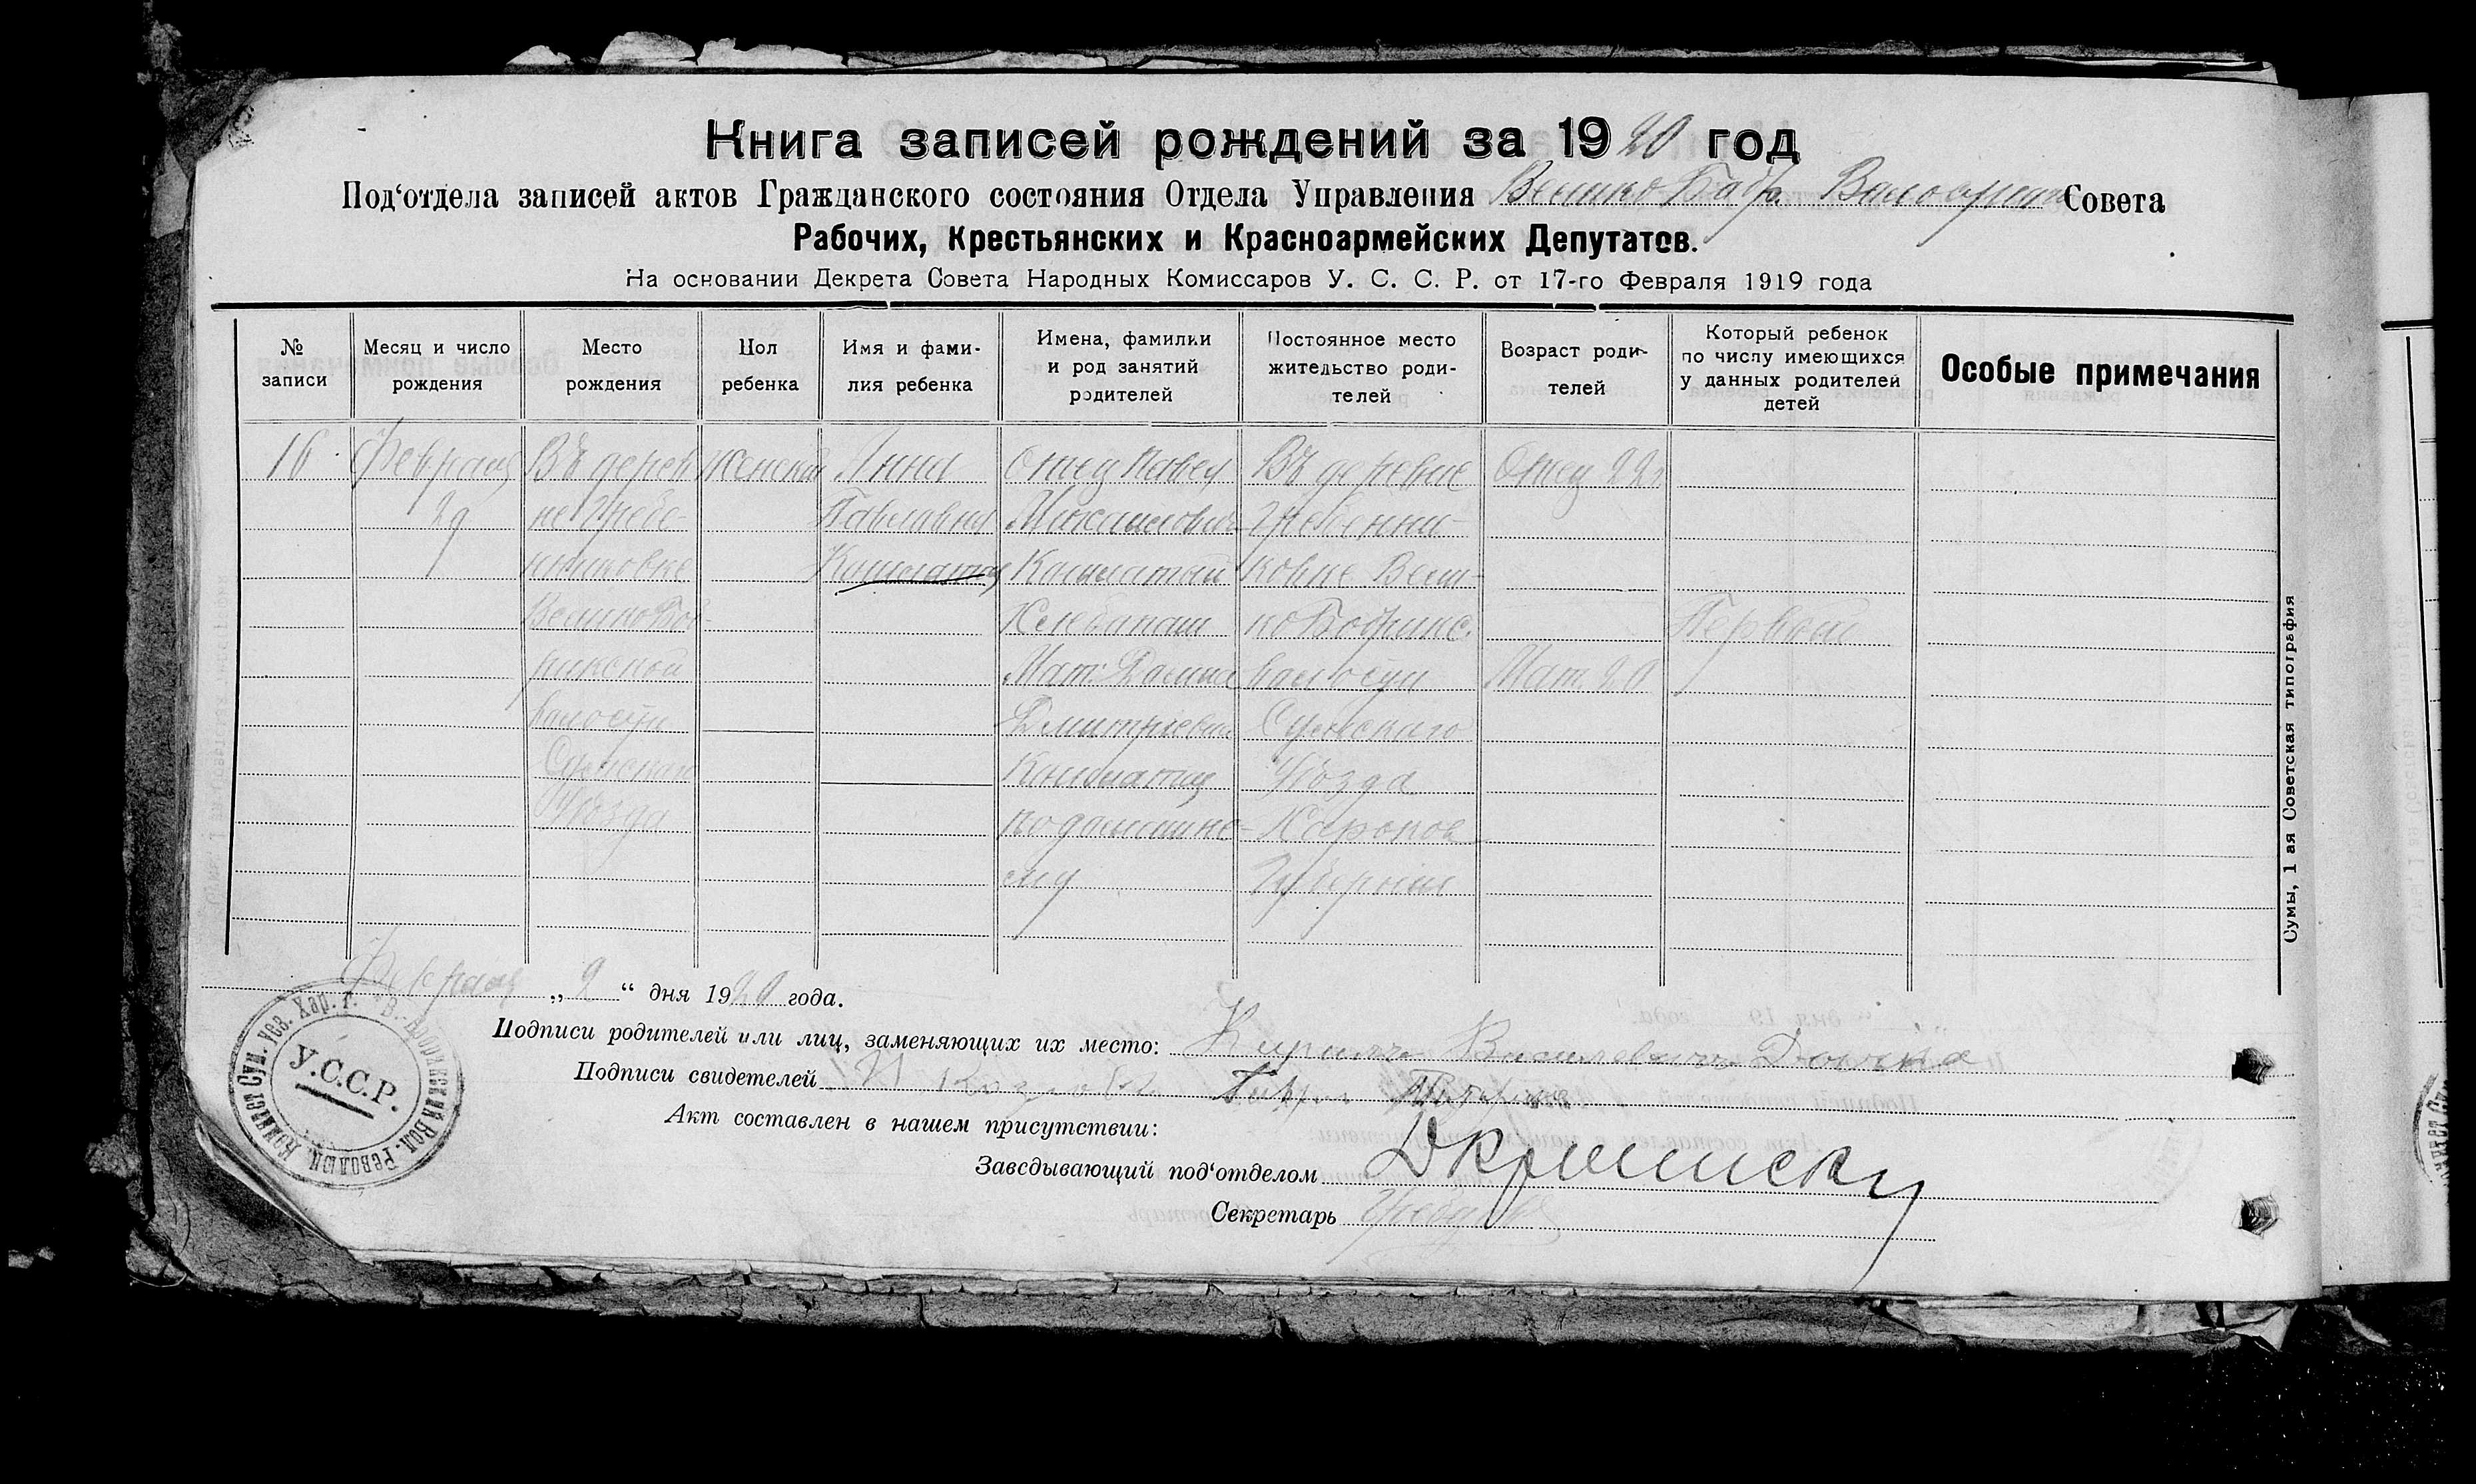 Книга записей рождений за 1920 год
Под'отдела записей актов Гражданского состояния Отдела Управления Велико Бобр. Совета
Рабочих, Крестьянских и Красноармейских Депутатов.
На основании Декрета Совета Народных Комиссаров У. С. С. Р. от 17-го Февраля 1919 года
№ записи
Месяц и число рождения
Место рождения
Пол ребенка
Имя и фами-
лия ребенка
Имена, фамилии
и род занятий
родителей
Постоянное место
жительство роди-
телей
Возраст роди-
телей
Который ребенок
по числу имеющихся
у данных родителей
детей
Особые примечания
16
Февраля
Въ дерев
не Гребе-
никовке
Велико Боб-
рикской
волости
Сумского
Уѣзда
Женский
Анна
Павловна
Отец Павел
Михаилович
Косматый
Хлебапаш
Мат.
Дмитриевна
Косматая
по домашне-
му
Въ деревне
Гребенни-
ковке Вели-
ко Бобрикс.
волости
Сумского
Уѣзда
Харьков
Губернии
Отец 22
Мат. 20
Первый
Февраля „ 9 “ дня 1920 года.
Подписи родителей или лиц, заменяющих их место: Васильевичъ
Подписи свидетелей
Акт составлен в нашем присутствии:
Заведывающий под'отделом
Секретарь
У.С.С.Р.
В.-Бобрикский Вол. Революц. Комитет Сум. уез. Хар. г.
Сумы, 1 ая Советская типография